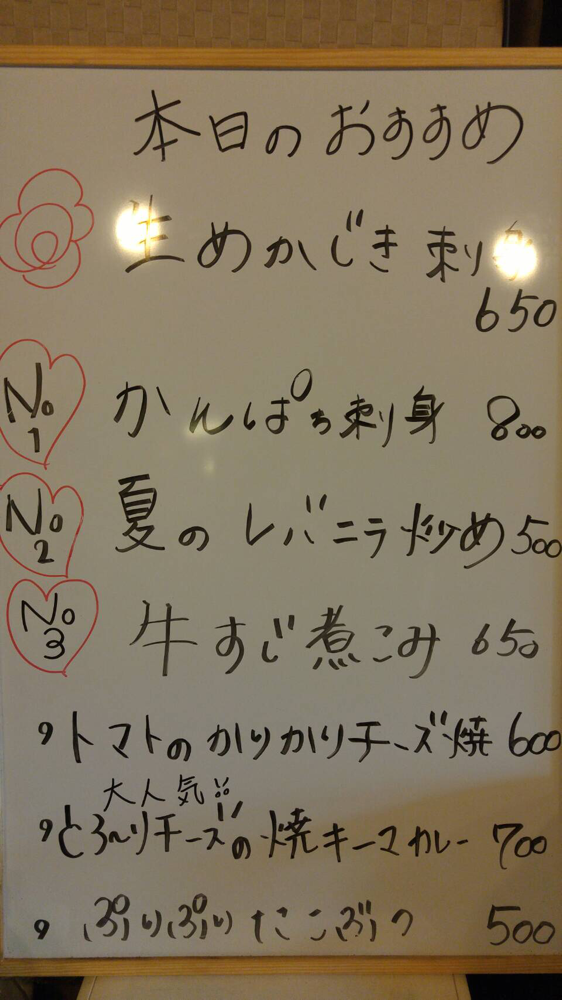 本日のおすすめ
生めかじき刺身
650
No1 かんぱち刺身 800
No2 夏のレバニラ炒め 500
No3 牛すじ煮こみ 650
トマトのかりかりチーズ焼 600
大人気
とろ〜りチーズの焼キーマカレー 700
ぷりぷりたこぶつ 500